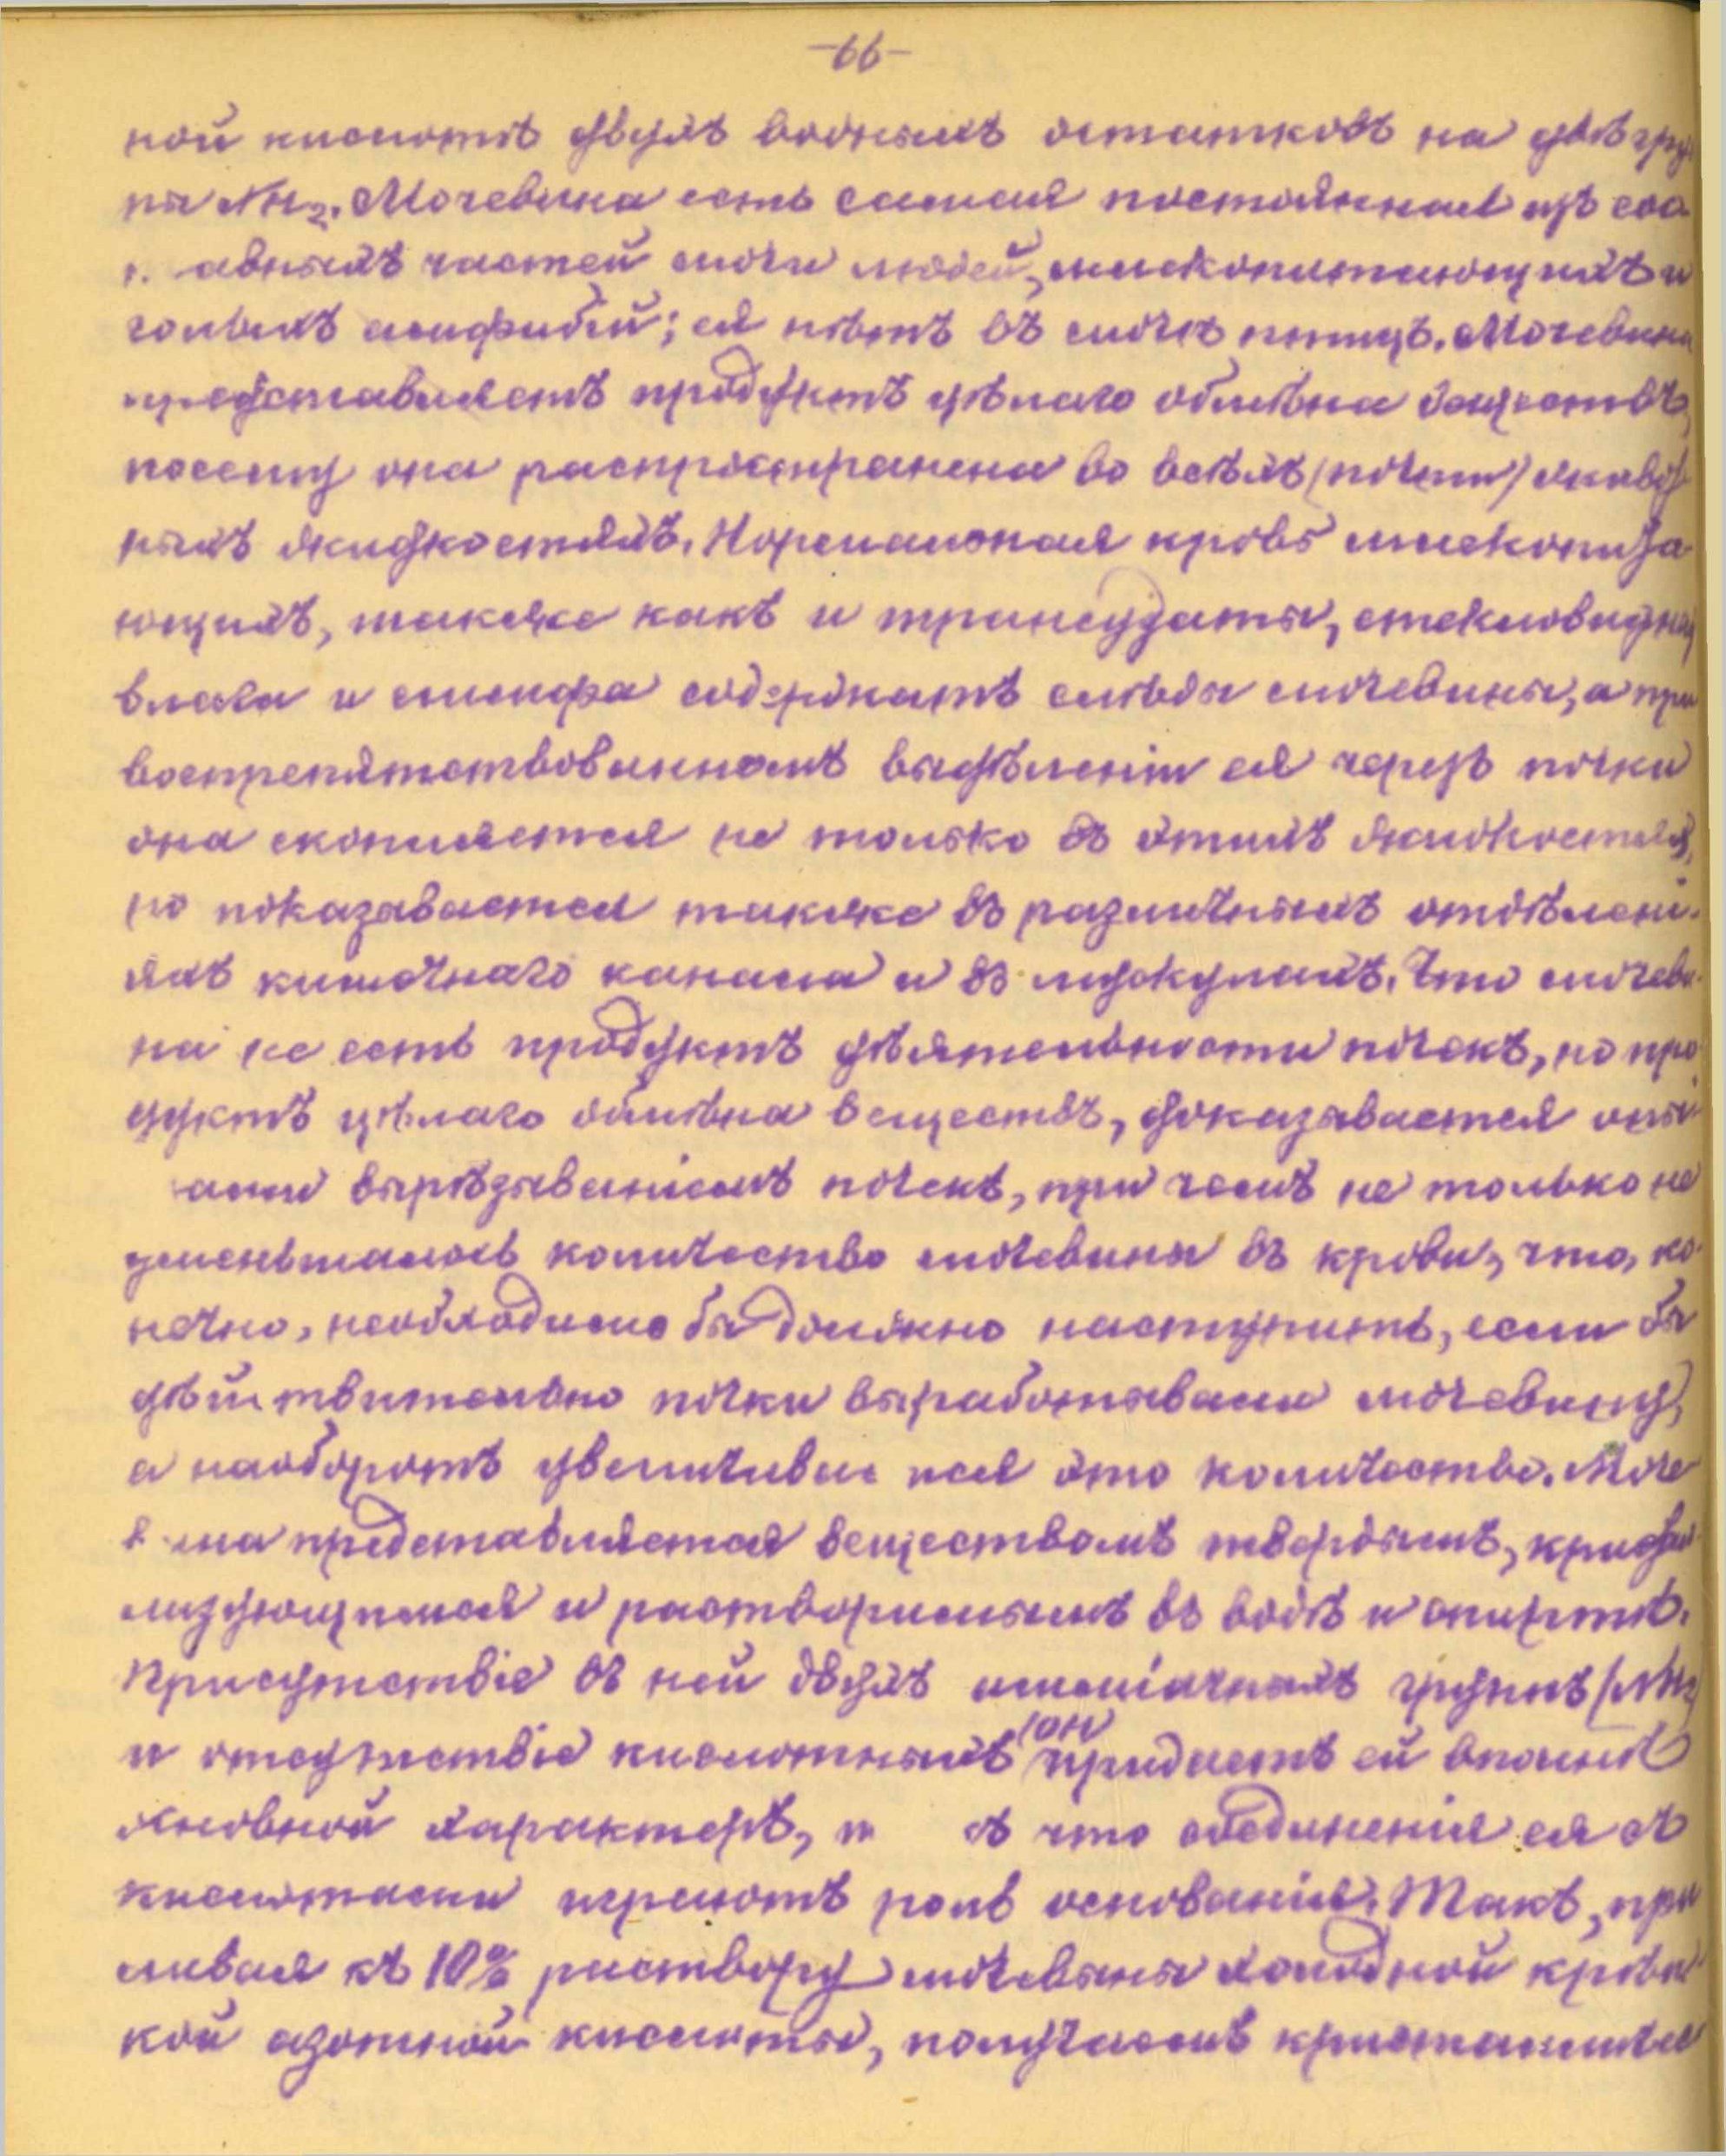 -66-
ной кислотѣ двухъ водныхъ остатковъ на двѣ груп
пы NH₂. Мочевина есть самая постоянная изъ сос
т авныхъ частей мочи людей, млекопитающихъ и
голыхъ амфибій; ея нѣтъ въ мочѣ птицъ. Мочевина
представляетъ продуктъ цѣлаго обмѣна веществъ,
посему она распространена во всѣхъ (почти) живот
ныхъ жидкостяхъ. Нормальная кровь млекопита-
ющихъ, такъже какъ и трансудаты, стекловидная
влага и лимфа содержатъ слѣды мочевины, а при
воспрепятствованномъ выдѣленіи ея черезъ почки
она скопляется не только въ этихъ жидкостяхъ,
но показывается также въ различныхъ отдѣлені-
яхъ кишечнаго канала и въ мускулахъ. Что мочеви-
на не есть продуктъ дѣятельности почекъ, но про-
дуктъ цѣлаго обмѣна веществъ, доказывается опы-
ами вырѣзываніемъ почекъ, при чемъ не только не
уменьшалось количество мочевины въ крови, что, ко-
нечно, необходимо бы должно наступить, если бы
дѣйствительно почки вырабатывали мочевину,
а наоборотъ увеличивалося это количество. Моче
вина представляется веществомъ твердымъ, кристал-
лизующимся и растворимымъ въ водѣ и спиртѣ.
Присутствіе въ ней двухъ амміачныхъ группъ (NH₂)
и отсутствіе кислотныхъ (ОН) придаетъ ей вполнѣ
основной характеръ, т къ что соединенія ея съ
кислотами играютъ роль основанія. Такъ, при
ливая къ 10% раствору мочевины холодной крѣп
кой азотной кислоты, получаемъ кристалличес